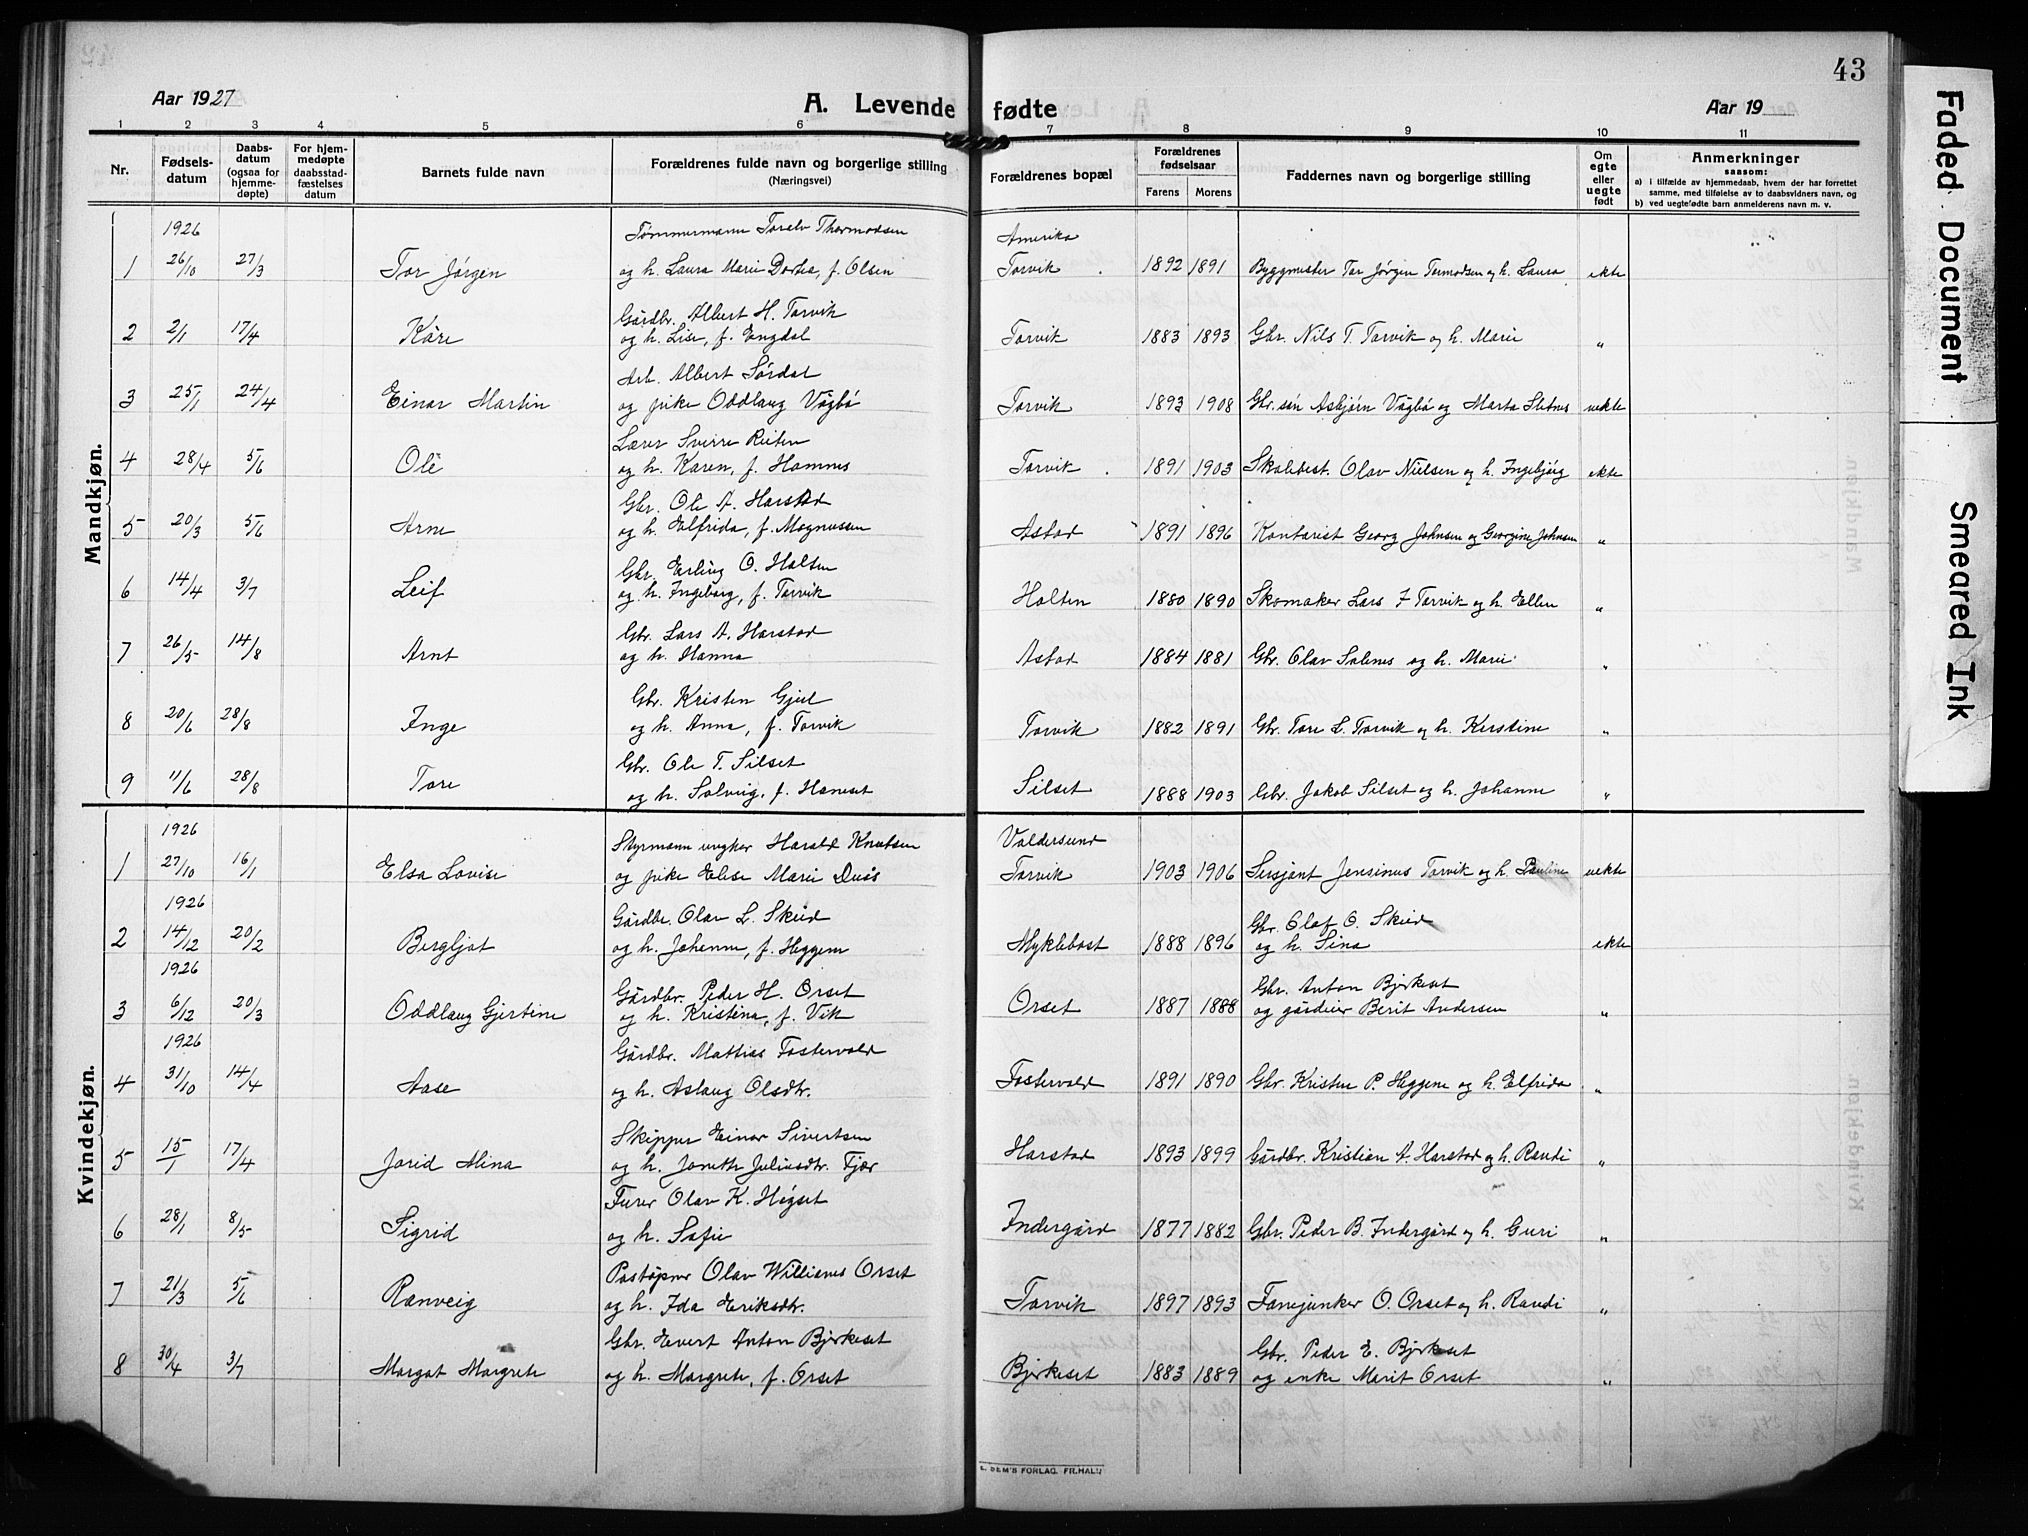 43
Aar 1927
A. Levende fødte
Aar 19
1 2 3 4 5 6 7 8 9 10 11
Nr.
Fødselsdatum
Daabsdatum (ogsaa for hjemmedøpte)
For hjemmedøpte daabsstadfæstelses datum
Barnets fulde navn
Forældrenes fulde navn og borgerlige stilling
(Næringsvei)
Forældrenes bopæl
Forældrenes fødselsaar
Farens Morens
Faddernes navn og borgerlige stilling
Om egte eller uegte født
Anmerkninger
saasom:
a) i tilfælde av hjemmedaab, hvem der har forrettet samme, med tilføielse av to daabsvidners navn, og
b) ved uegtefødte barn anmelderens navn m. v.
Mandkjøn.
1926 Tømmermann Toralv Thormodsen Amerika
1 26/10 27/3 Tor Jørgen og h. Laura Marie Dortea, f. Olsen Torvik 1892 1891 Byggmester Tor Jørgen Tormodsen og h. Laura ekte
Gårdbr. Albert H. Torvik
2 2/1 17/4 Kåre og h. Lise, f. Engdal Torvik 1883 1893 Gbr. Nils T. Torvik og h. Marie "
Arb. Albert Sørdal
3 25/1 24/4 Einar Martin og pike Oddlaug Vågbø Torvik 1893 1908 Gbr.søn Asbjørn Vågbø og Marta Sletnes uekte
Lærer Sverre Reiten
4 28/4 5/6 Ole og h. Karen, f. Hamnes Torvik 1891 1903 Skolebest. Olav Nielsen og h. Ingebjørg ekte
Gbr. Ole A. Harstad
5 20/3 5/6 Arne og h. Elfrida, f. Magnussen Astad 1891 1896 Kontorist Georg Johnsen og Georgine Johnsen "
Gbr. Erling O. Holten
6 14/4 3/7 Leif og h. Ingeborg, f. Torvik Holten 1880 1890 Skomaker Lars J Torvik og h. Ellen "
Gbr. Lars A. Harstad
7 26/5 14/8 Arnt og h. Hanna Astad 1884 1881 Gbr. Olav Solenes og h. Marie "
Gbr. Kristen Gjul
8 20/6 28/8 Inge og h. Anna, f. Torvik Torvik 1882 1891 Gbr. Tore L. Torvik og h. Kerstine "
Gbr. Ole T. Silset
9 11/6 28/8 Tore og h. Solveig, f. Haneset Silset 1888 1903 Gbr. Jakob Silset og h. Johanne "
Kvindekjøn.
1926 Styrmann ungkar Harald Knutsen Valdersund
1 27/10 16/1 Elsa Lovise og pike Elise Marie Duås Torvik 1903 1906 Sersjant Jensinus Torvik og h. Pauline uekte
1926 Gårdbr. Olav L. Skeid Gbr. Olaf O. Skeid
2 14/12 20/2 Bergljot og h. Johanne, f. Heggem Myklebost 1888 1896 og h. Sina ekte
1926 Gårdbr. Peder H. Orset Gbr. Anton Bjerkeset
3 6/12 20/3 Oddlaug Gjertine og h. Kristina, f. Vik Orset 1887 1888 og gårdeier Berit Andersen "
1926 Gårdbr. Mattias Fostervold
4 31/10 14/4 Aase og h. Aslaug Olsdtr. Fostervold 1891 1890 Gbr. Kristen P. Heggem og h. Elfrida "
Skipper Einar Sivertsen
5 15/1 17/4 Jorid Alina og h. Joneth Juliusdtr. Fjær Harstad 1893 1899 Gårdbr. Kristian A. Harstad og h. Randi "
Furer Olav K. Høgset
6 28/1 8/5 Sigrid og h. Sofie Indergård 1877 1882 Gbr. Peder B. Indergård og h. Guri "
Postøpner Olav Williames Orset
7 21/3 5/6 Ranveig og h. Ida Eriksdtr. Torvik 1897 1893 Fanejunker O. Orset og h. Randi "
Gbr. Evert Anton Bjerkeset Gbr. Peder E. Bjerkeset
8 30/4 3/7 Margot Margrete og h. Margrete, f. Orset Bjerkeset 1883 1889 og enke Marit Orset "
SEM'S FORLAG. FR.HALD
Faded Document
Smeared Ink